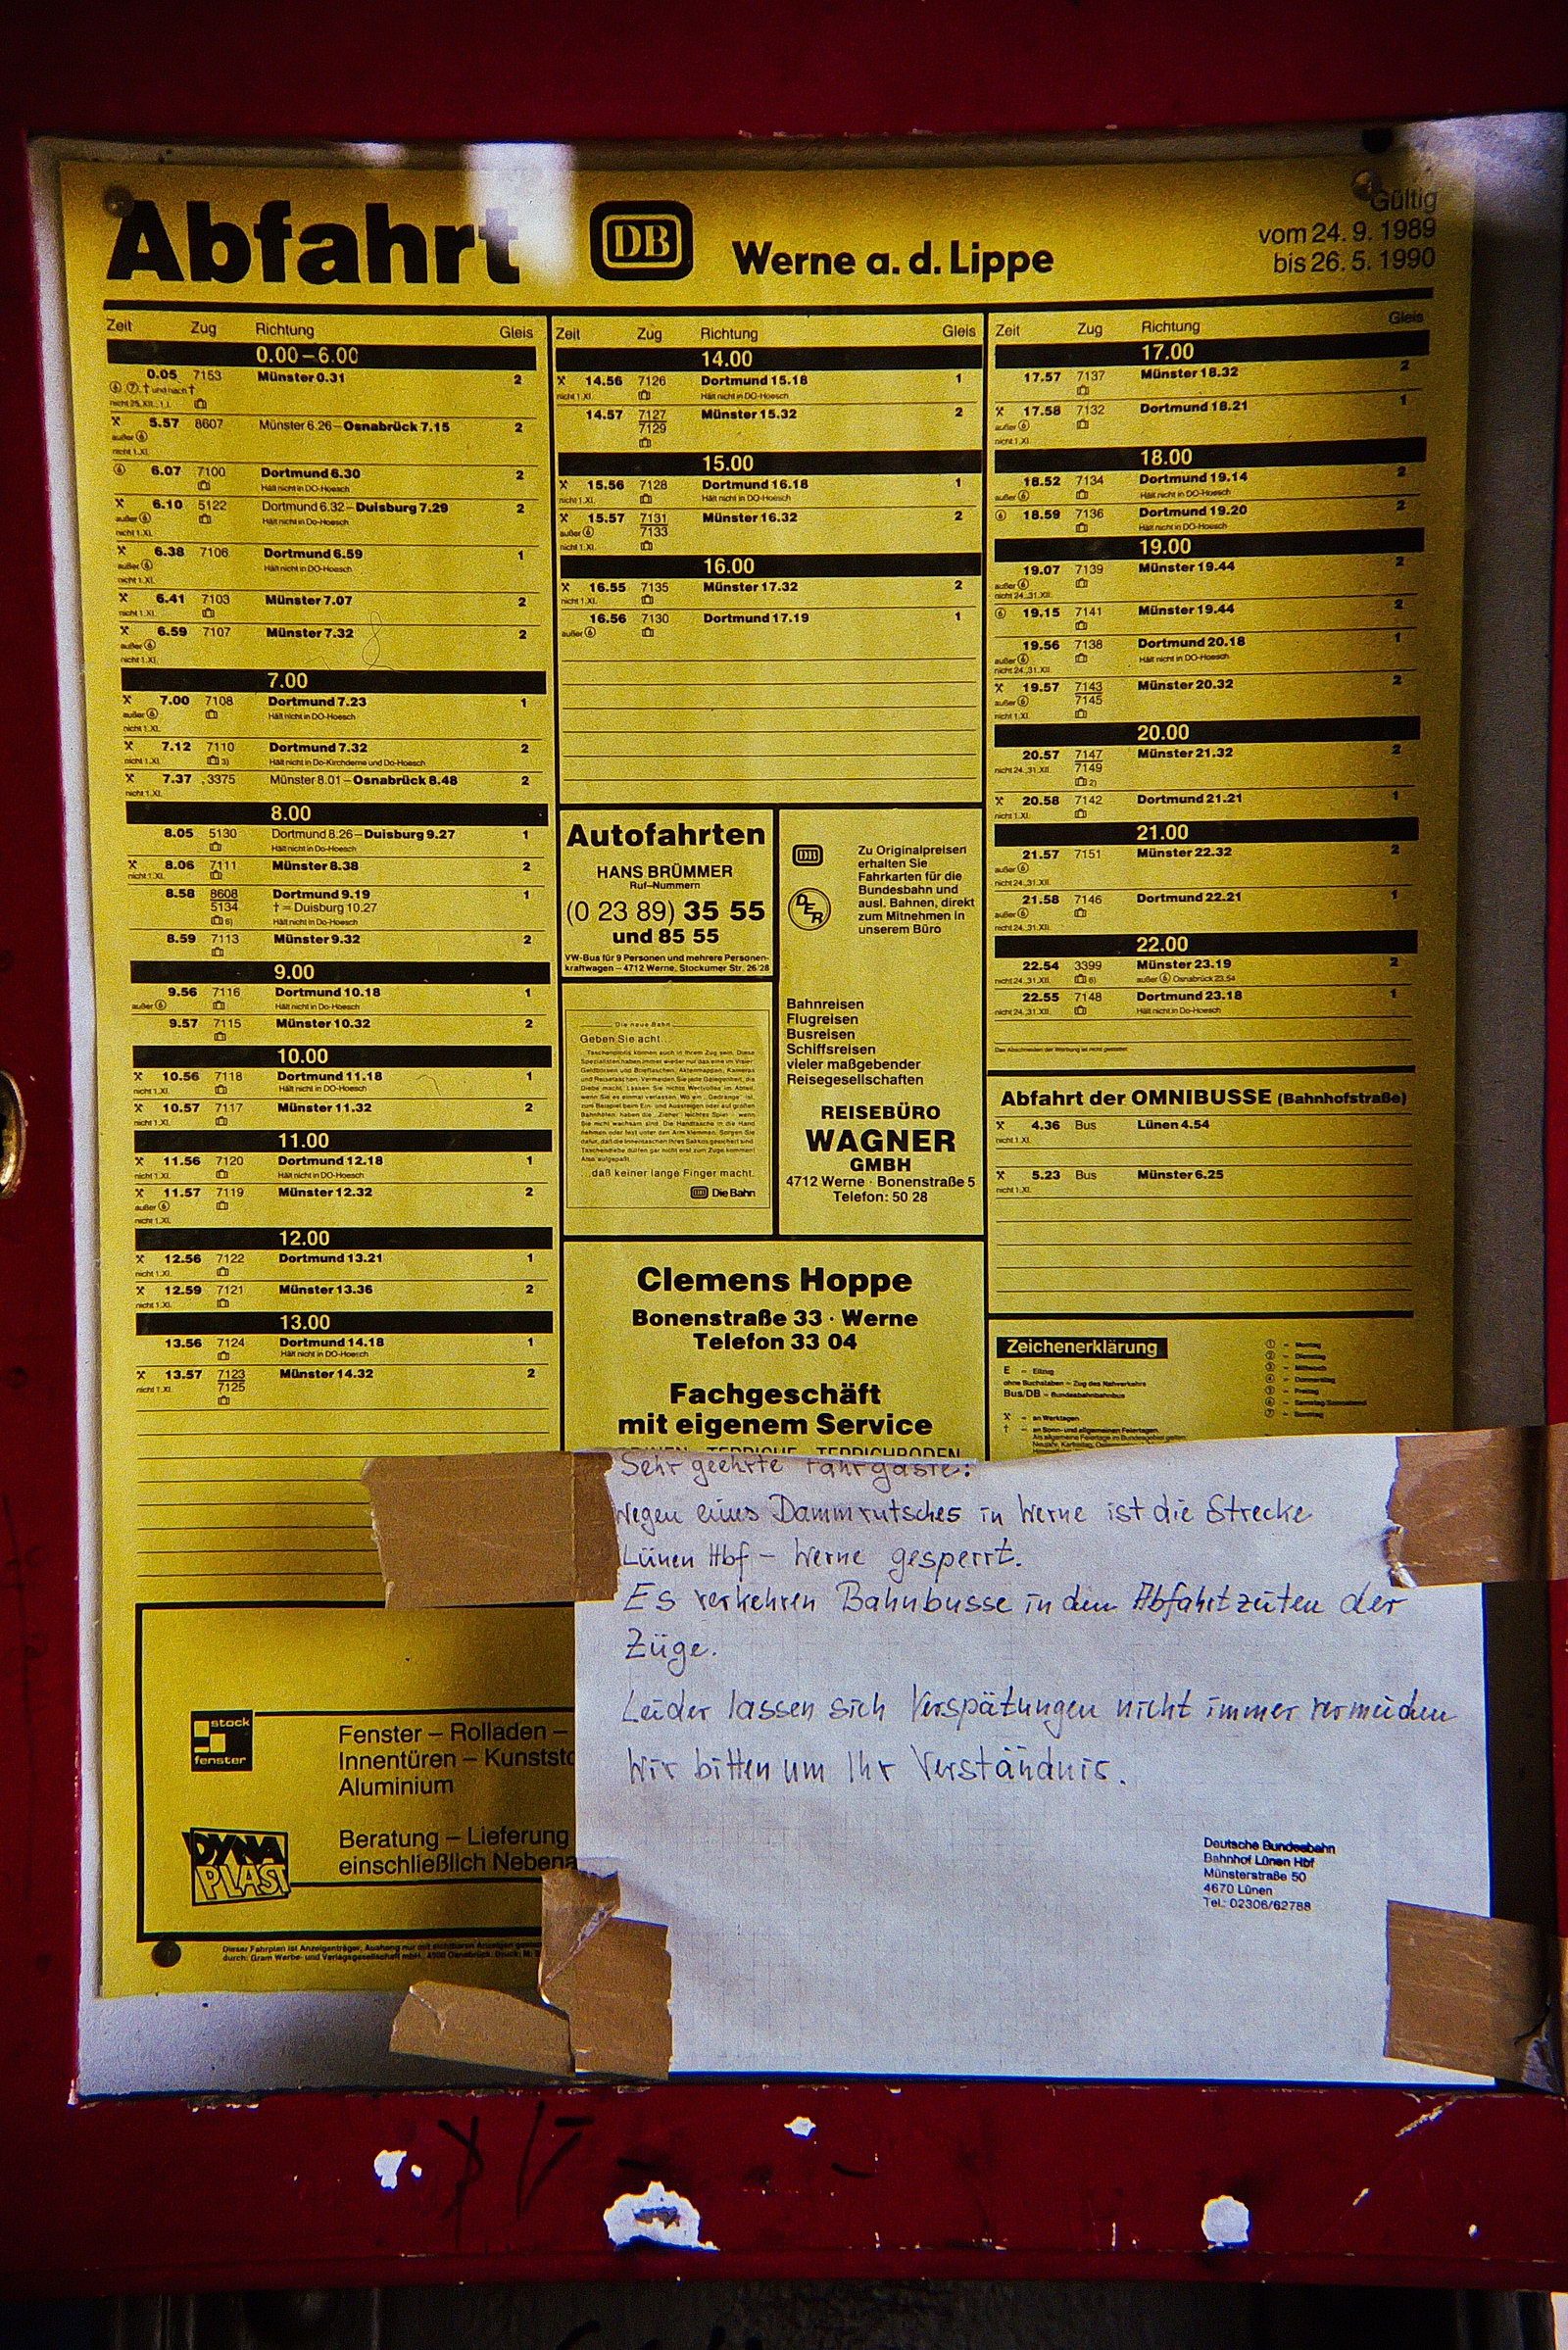 Abfahrt
DB
Werne a. d. Lippe
Gültig
vom 24. 9. 1989
bis 26. 5. 1990
Zeit Zug Richtung Gleis
0.00–6.00
0.05 7153 Münster 0.31 2
5.57 8607 Münster 6.26–Osnabrück 7.15 2
außer ⑥
nicht 1.XI.
⑥ 6.07 7100 Dortmund 6.30 2
Hält nicht in DO-Hoesch
6.10 5122 Dortmund 6.32–Duisburg 7.29 2
außer ⑥ Hält nicht in Do-Hoesch
nicht 1.XI.
6.38 7106 Dortmund 6.59 1
außer ⑥ Hält nicht in DO-Hoesch
nicht 1.XI.
6.41 7103 Münster 7.07 2
nicht 1.XI.
6.59 7107 Münster 7.32 2
außer ⑥
nicht 1.XI.
7.00
7.00 7108 Dortmund 7.23 1
außer ⑥ Hält nicht in DO-Hoesch
nicht 1.XI.
7.12 7110 Dortmund 7.32 2
nicht 1.XI. 3) Hält nicht in Do-Kirchderne und Do-Hoesch
7.37 3375 Münster 8.01–Osnabrück 8.48 2
nicht 1.XI.
8.00
8.05 5130 Dortmund 8.26–Duisburg 9.27 1
Hält nicht in Do-Hoesch
8.06 7111 Münster 8.38 2
nicht 1.XI.
8.58 8608 Dortmund 9.19 1
5134 † = Duisburg 10.27
6) Hält nicht in Do-Hoesch
8.59 7113 Münster 9.32 2
9.00
9.56 7116 Dortmund 10.18 1
außer ⑥ Hält nicht in Do-Hoesch
9.57 7115 Münster 10.32 2
10.00
10.56 7118 Dortmund 11.18 1
nicht 1.XI. Hält nicht in DO-Hoesch
10.57 7117 Münster 11.32 2
nicht 1.XI.
11.00
11.56 7120 Dortmund 12.18 1
nicht 1.XI. Hält nicht in DO-Hoesch
11.57 7119 Münster 12.32 2
außer ⑥
nicht 1.XI.
12.00
12.56 7122 Dortmund 13.21 1
nicht 1.XI.
12.59 7121 Münster 13.36 2
nicht 1.XI.
13.00
13.56 7124 Dortmund 14.18 1
Hält nicht in DO-Hoesch
13.57 7123 Münster 14.32 2
nicht 1.XI. 7125
Zeit Zug Richtung Gleis
14.00
14.56 7126 Dortmund 15.18 1
nicht 1.XI. Hält nicht in DO-Hoesch
14.57 7127 Münster 15.32 2
7129
15.00
15.56 7128 Dortmund 16.18 1
nicht 1.XI. Hält nicht in DO-Hoesch
15.57 7131 Münster 16.32 2
außer ⑥ 7133
nicht 1.XI.
16.00
16.55 7135 Münster 17.32 2
nicht 1.XI.
16.56 7130 Dortmund 17.19 1
außer ⑥
Zeit Zug Richtung Gleis
17.00
17.57 7137 Münster 18.32 2
17.58 7132 Dortmund 18.21 1
außer ⑥
nicht 1.XI.
18.00
18.52 7134 Dortmund 19.14 2
außer ⑥ Hält nicht in DO-Hoesch
⑥ 18.59 7136 Dortmund 19.20 2
Hält nicht in DO-Hoesch
19.00
19.07 7139 Münster 19.44 2
außer ⑥
nicht 24.,31.XII.
⑥ 19.15 7141 Münster 19.44 2
19.56 7138 Dortmund 20.18 1
außer ⑥ Hält nicht in DO-Hoesch
nicht 24.,31.XII.
19.57 7143 Münster 20.32 2
außer ⑥ 7145
nicht 1.XI.
20.00
20.57 7147 Münster 21.32 2
nicht 24.,31.XII. 7149
2)
20.58 7142 Dortmund 21.21 1
nicht 1.XI.
21.00
21.57 7151 Münster 22.32 2
außer ⑥
nicht 24.,31.XII.
21.58 7146 Dortmund 22.21 1
außer ⑥
nicht 24.,31.XII.
22.00
22.54 3399 Münster 23.19 2
nicht 24.,31.XII. 6) außer ⑥ Osnabrück 23.54
22.55 7148 Dortmund 23.18 1
nicht 24.,31.XII. Hält nicht in Do-Hoesch
Abfahrt der OMNIBUSSE (Bahnhofstraße)
4.36 Bus Lünen 4.54
nicht 1.XI.
5.23 Bus Münster 6.25
nicht 1.XI.
Autofahrten
HANS BRÜMMER
Ruf-Nummern
(0 23 89) 35 55
und 85 55
VW-Bus für 9 Personen und mehrere Personen-
kraftwagen – 4712 Werne, Stockumer Str. 26/28
Die neue Bahn
Geben Sie acht...
...daß keiner lange Finger macht.
DB Die Bahn
DB
DER
Zu Originalpreisen
erhalten Sie
Fahrkarten für die
Bundesbahn und
ausl. Bahnen, direkt
zum Mitnehmen in
unserem Büro
Bahnreisen
Flugreisen
Busreisen
Schiffsreisen
vieler maßgebender
Reisegesellschaften
REISEBÜRO
WAGNER
GMBH
4712 Werne · Bonenstraße 5
Telefon: 50 28
Clemens Hoppe
Bonenstraße 33 · Werne
Telefon 33 04
Fachgeschäft
mit eigenem Service
TEPPICHE – TEPPICHBODEN
Zeichenerklärung
E – Eilzug
ohne Buchstaben – Zug des Nahverkehrs
Bus/DB – Bundesbahnbus
– an Werktagen
† – an Sonn- und allgemeinen Feiertagen.
① – Montag
② – Dienstag
③ – Mittwoch
④ – Donnerstag
⑤ – Freitag
⑥ – Samstag/Sonnabend
⑦ – Sonntag
Sehr geehrte Fahrgäste!
Wegen eines Dammrutsches in Werne ist die Strecke
Lünen Hbf – Werne gesperrt.
Es verkehren Bahnbusse in den Abfahrtzeiten der
Züge.
Leider lassen sich Verspätungen nicht immer vermeiden
Wir bitten um Ihr Verständnis.
Deutsche Bundesbahn
Bahnhof Lünen Hbf
Münsterstraße 50
4670 Lünen
Tel.: 02306/62788
stock
fenster
Fenster – Rolladen –
Innentüren – Kunststo
Aluminium
DYNA
PLAST
Beratung – Lieferung
einschließlich Nebena